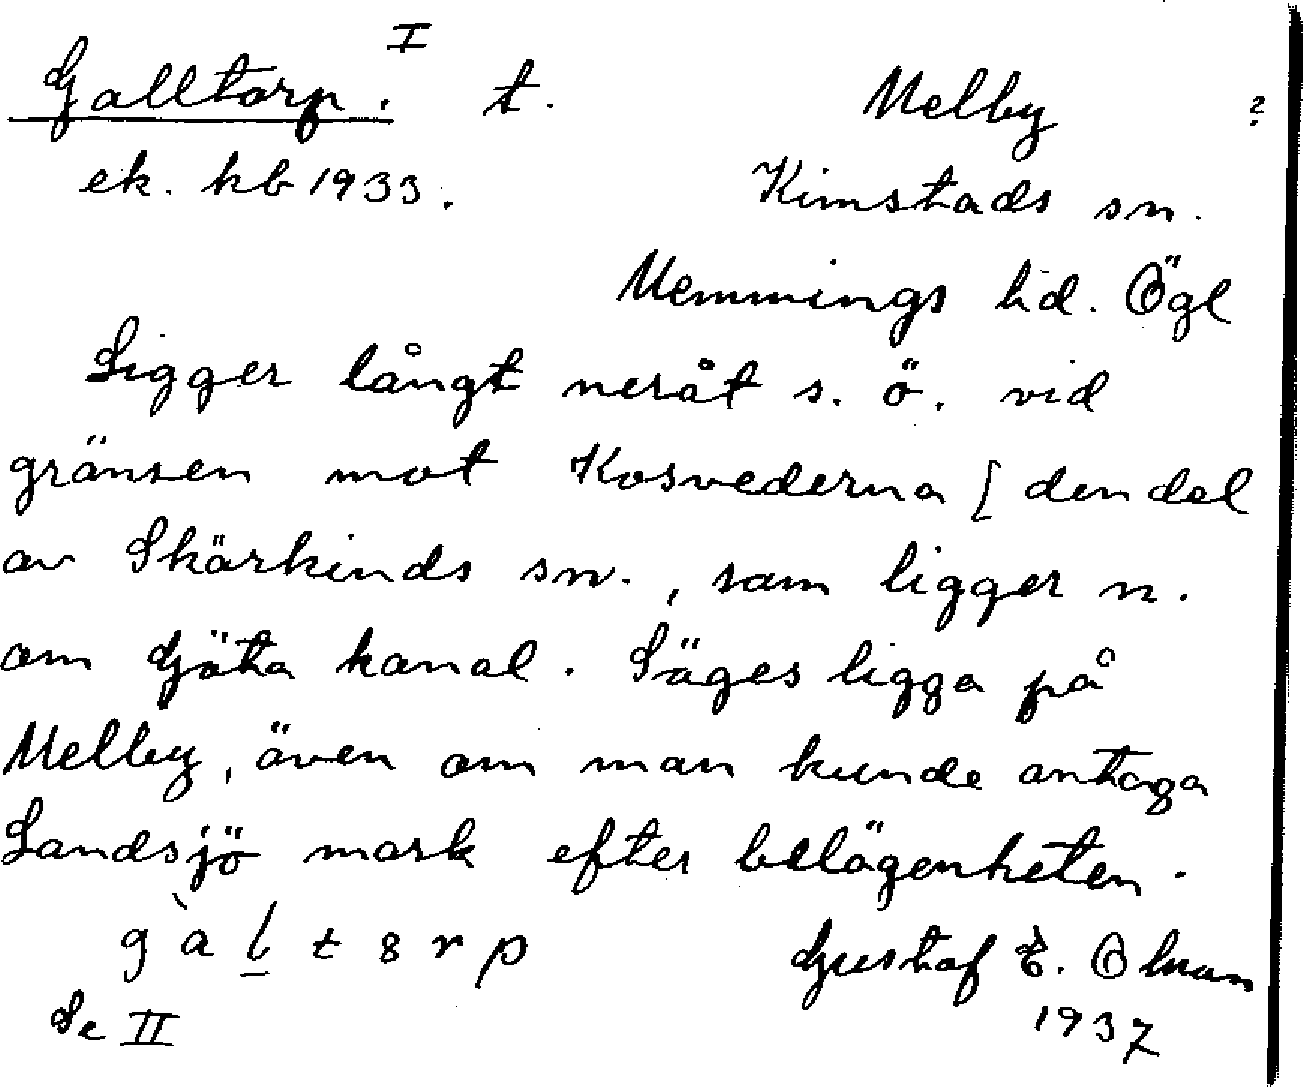 Galltorp. I t. Melby ?
ek. kb 1933. Kimstads sn.
Memmings hd. Ögl
Ligger långt neråt s. ö. vid
gränsen mot Kosvederna [ den del
av Skärkinds sn., som ligger n.
om Göta kanal. Säges ligga på
Melby, även om man kunde antaga
Landsjö mark efter belägenheten.
g à l t 8 r p Gustaf E.
Se II 1937